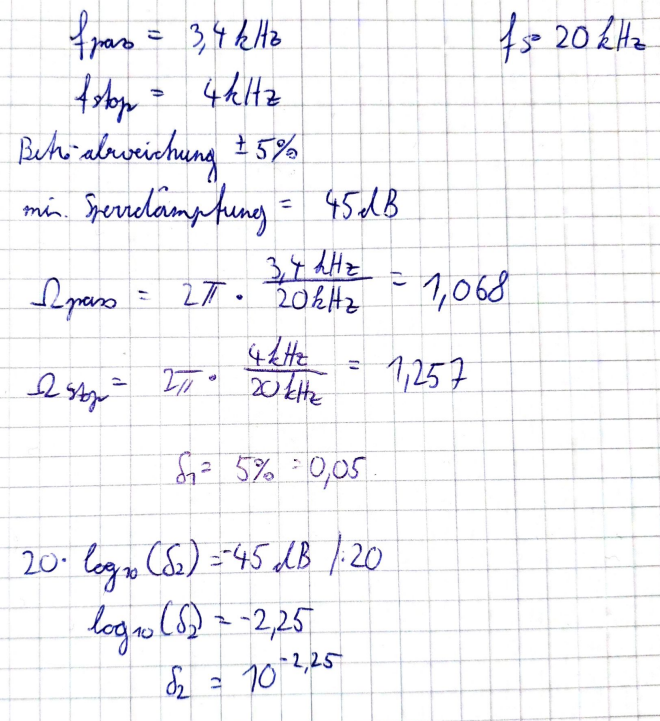 fpass = 3,4 kHz fs = 20 kHz
fstop = 4 kHz
Betr.-abweichung ± 5%
min. Sperrdämpfung = 45 dB
Ωpass = 2π · 3,4 kHz / 20 kHz = 1,068
Ωstop = 2π · 4 kHz / 20 kHz = 1,257
δ₁ = 5% = 0,05
20 · log₁₀(δ₂) = -45 dB /:20
log₁₀(δ₂) = -2,25
δ₂ = 10^-2,25